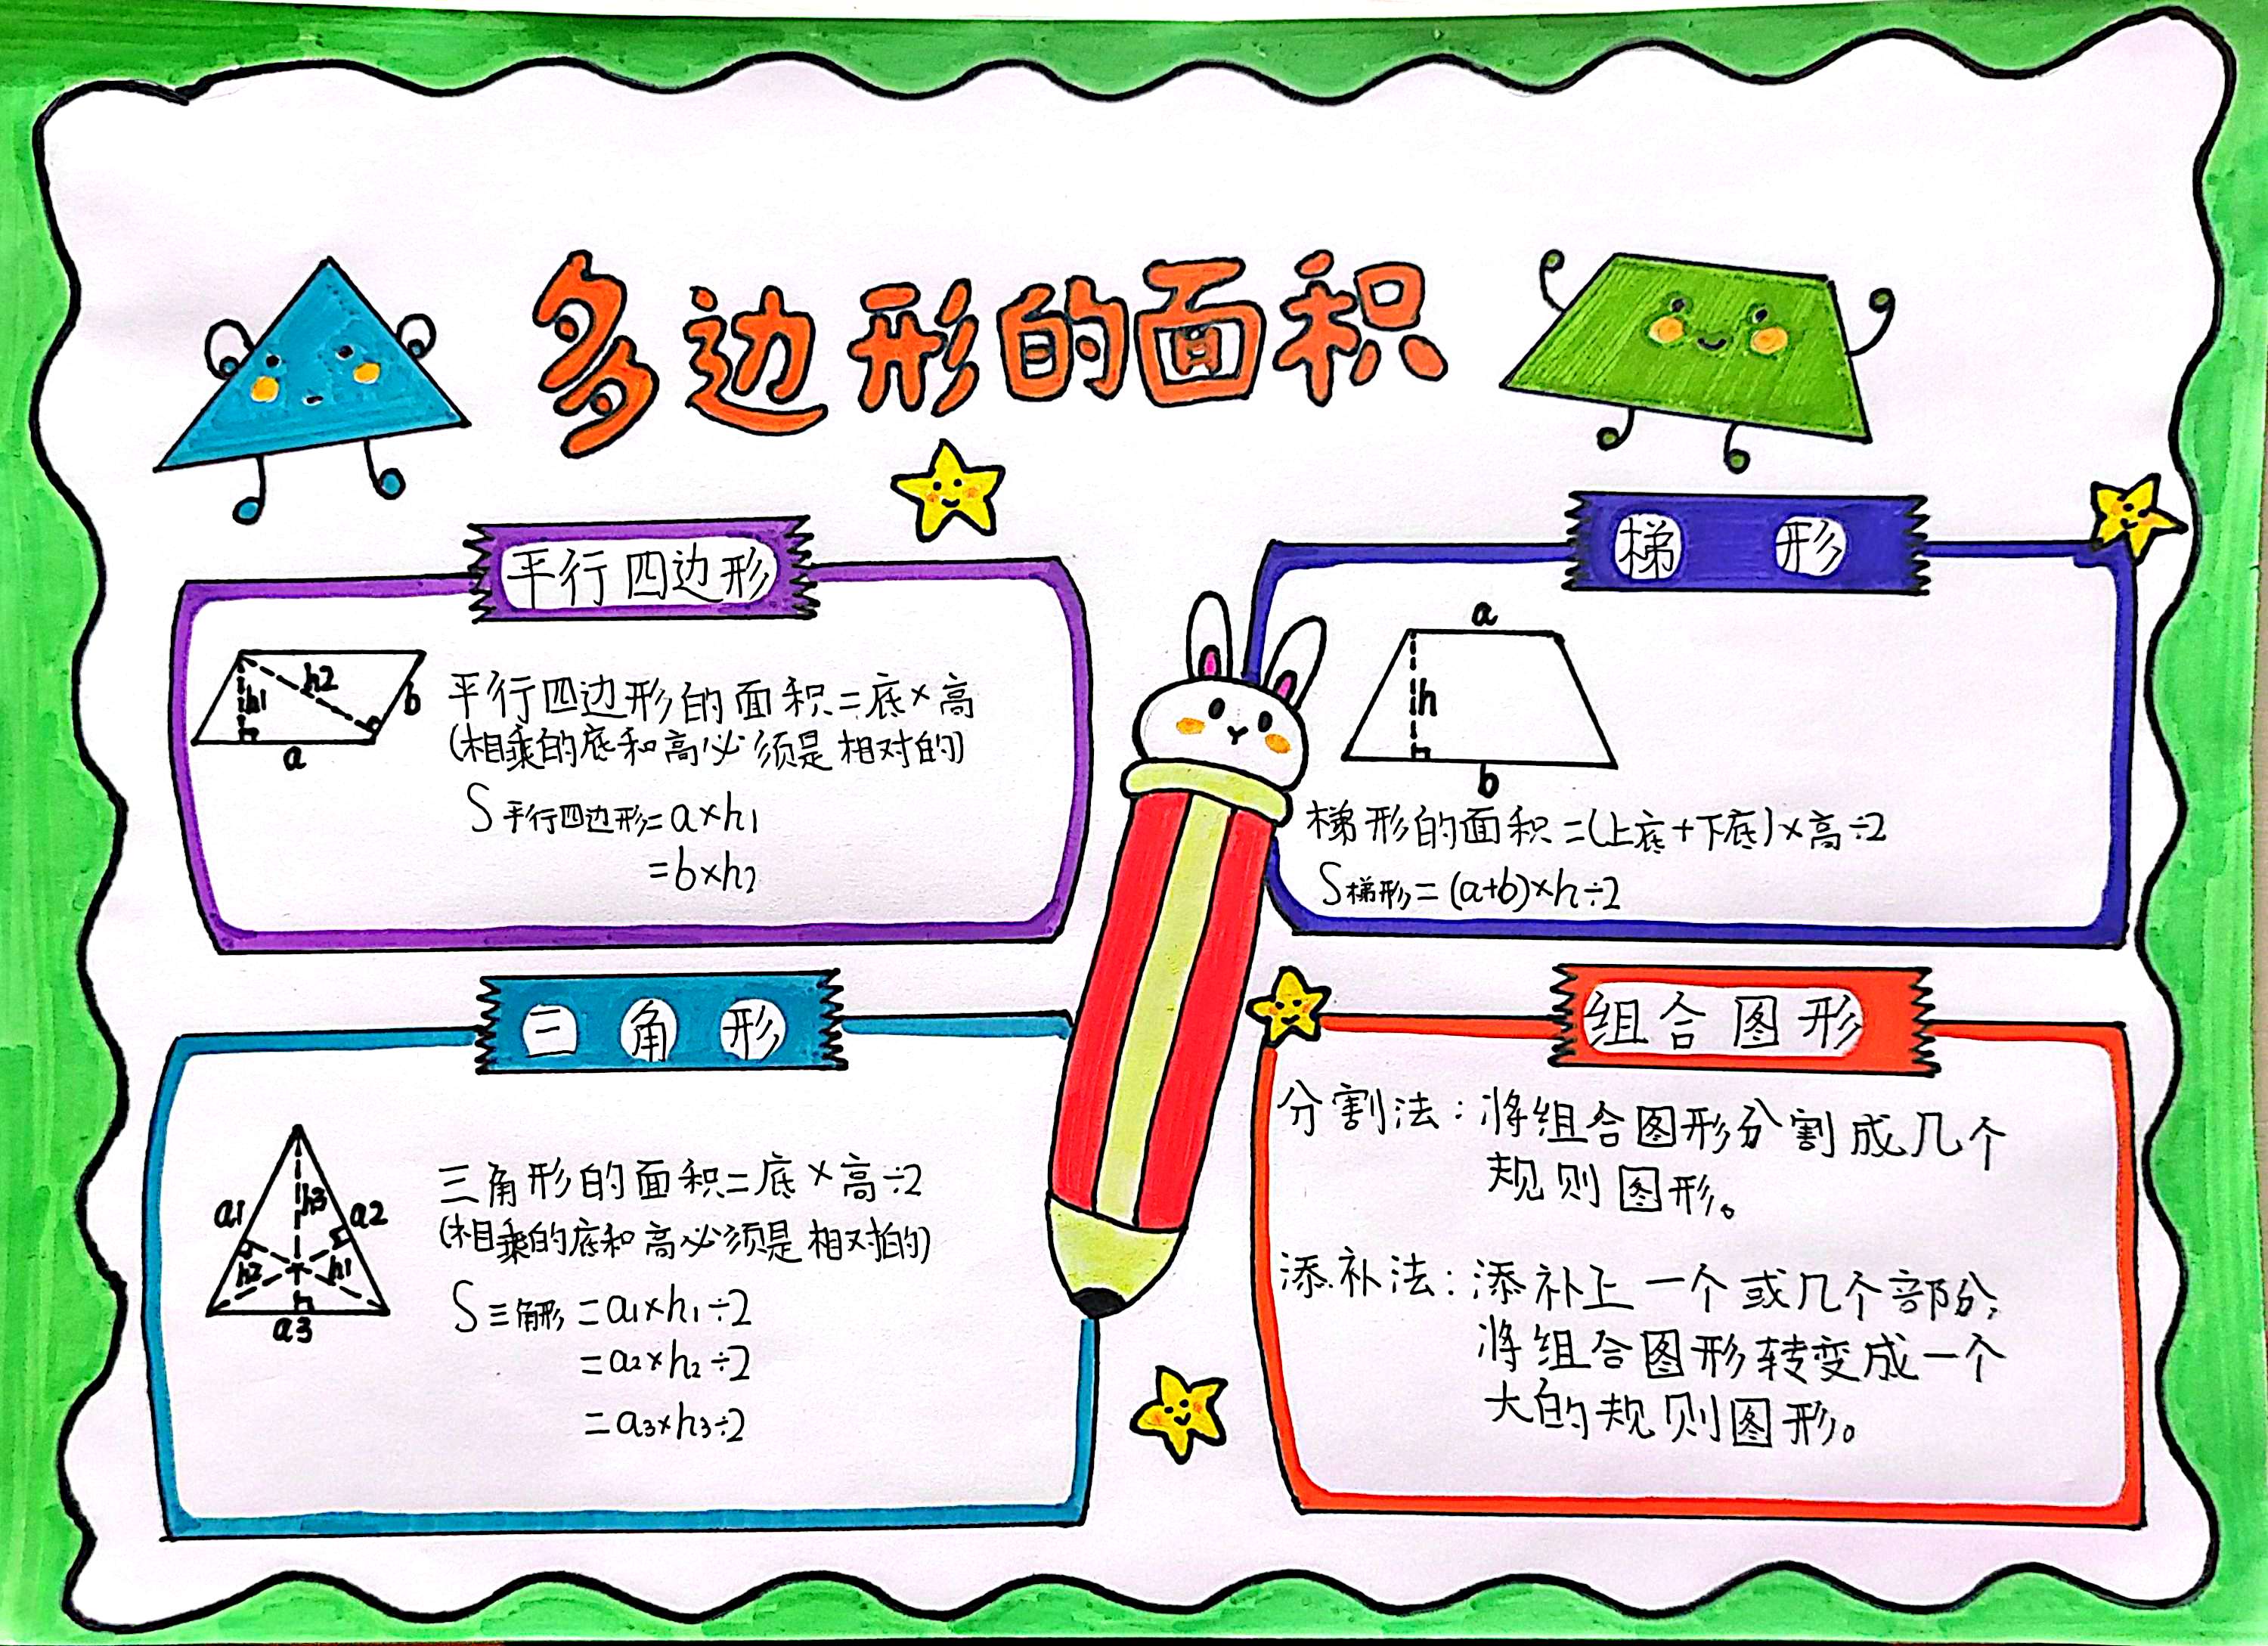 多边形的面积
平行四边形
h1
h2
b
a
平行四边形的面积=底×高
(相乘的底和高必须是相对的)
S平行四边形=a×h1
=b×h2
梯形
a
h
b
梯形的面积=(上底+下底)×高÷2
S梯形=(a+b)×h÷2
三角形
a1
h3
a2
h2
h1
a3
三角形的面积=底×高÷2
(相乘的底和高必须是相对的)
S三角形=a1×h1÷2
=a2×h2÷2
=a3×h3÷2
组合图形
分割法:将组合图形分割成几个
规则图形。
添补法:添补上一个或几个部分,
将组合图形转变成一个
大的规则图形。